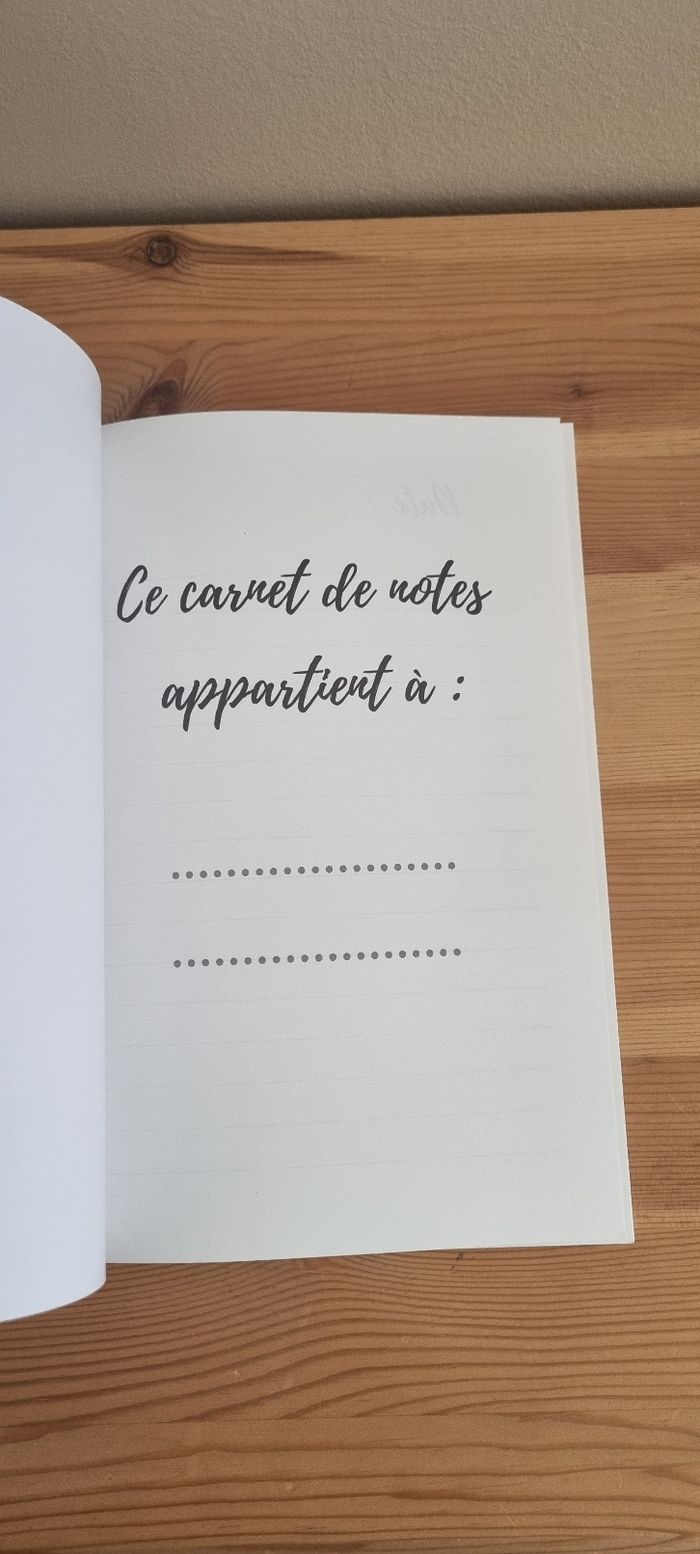 Ce carnet de notes
appartient à :
....................
....................